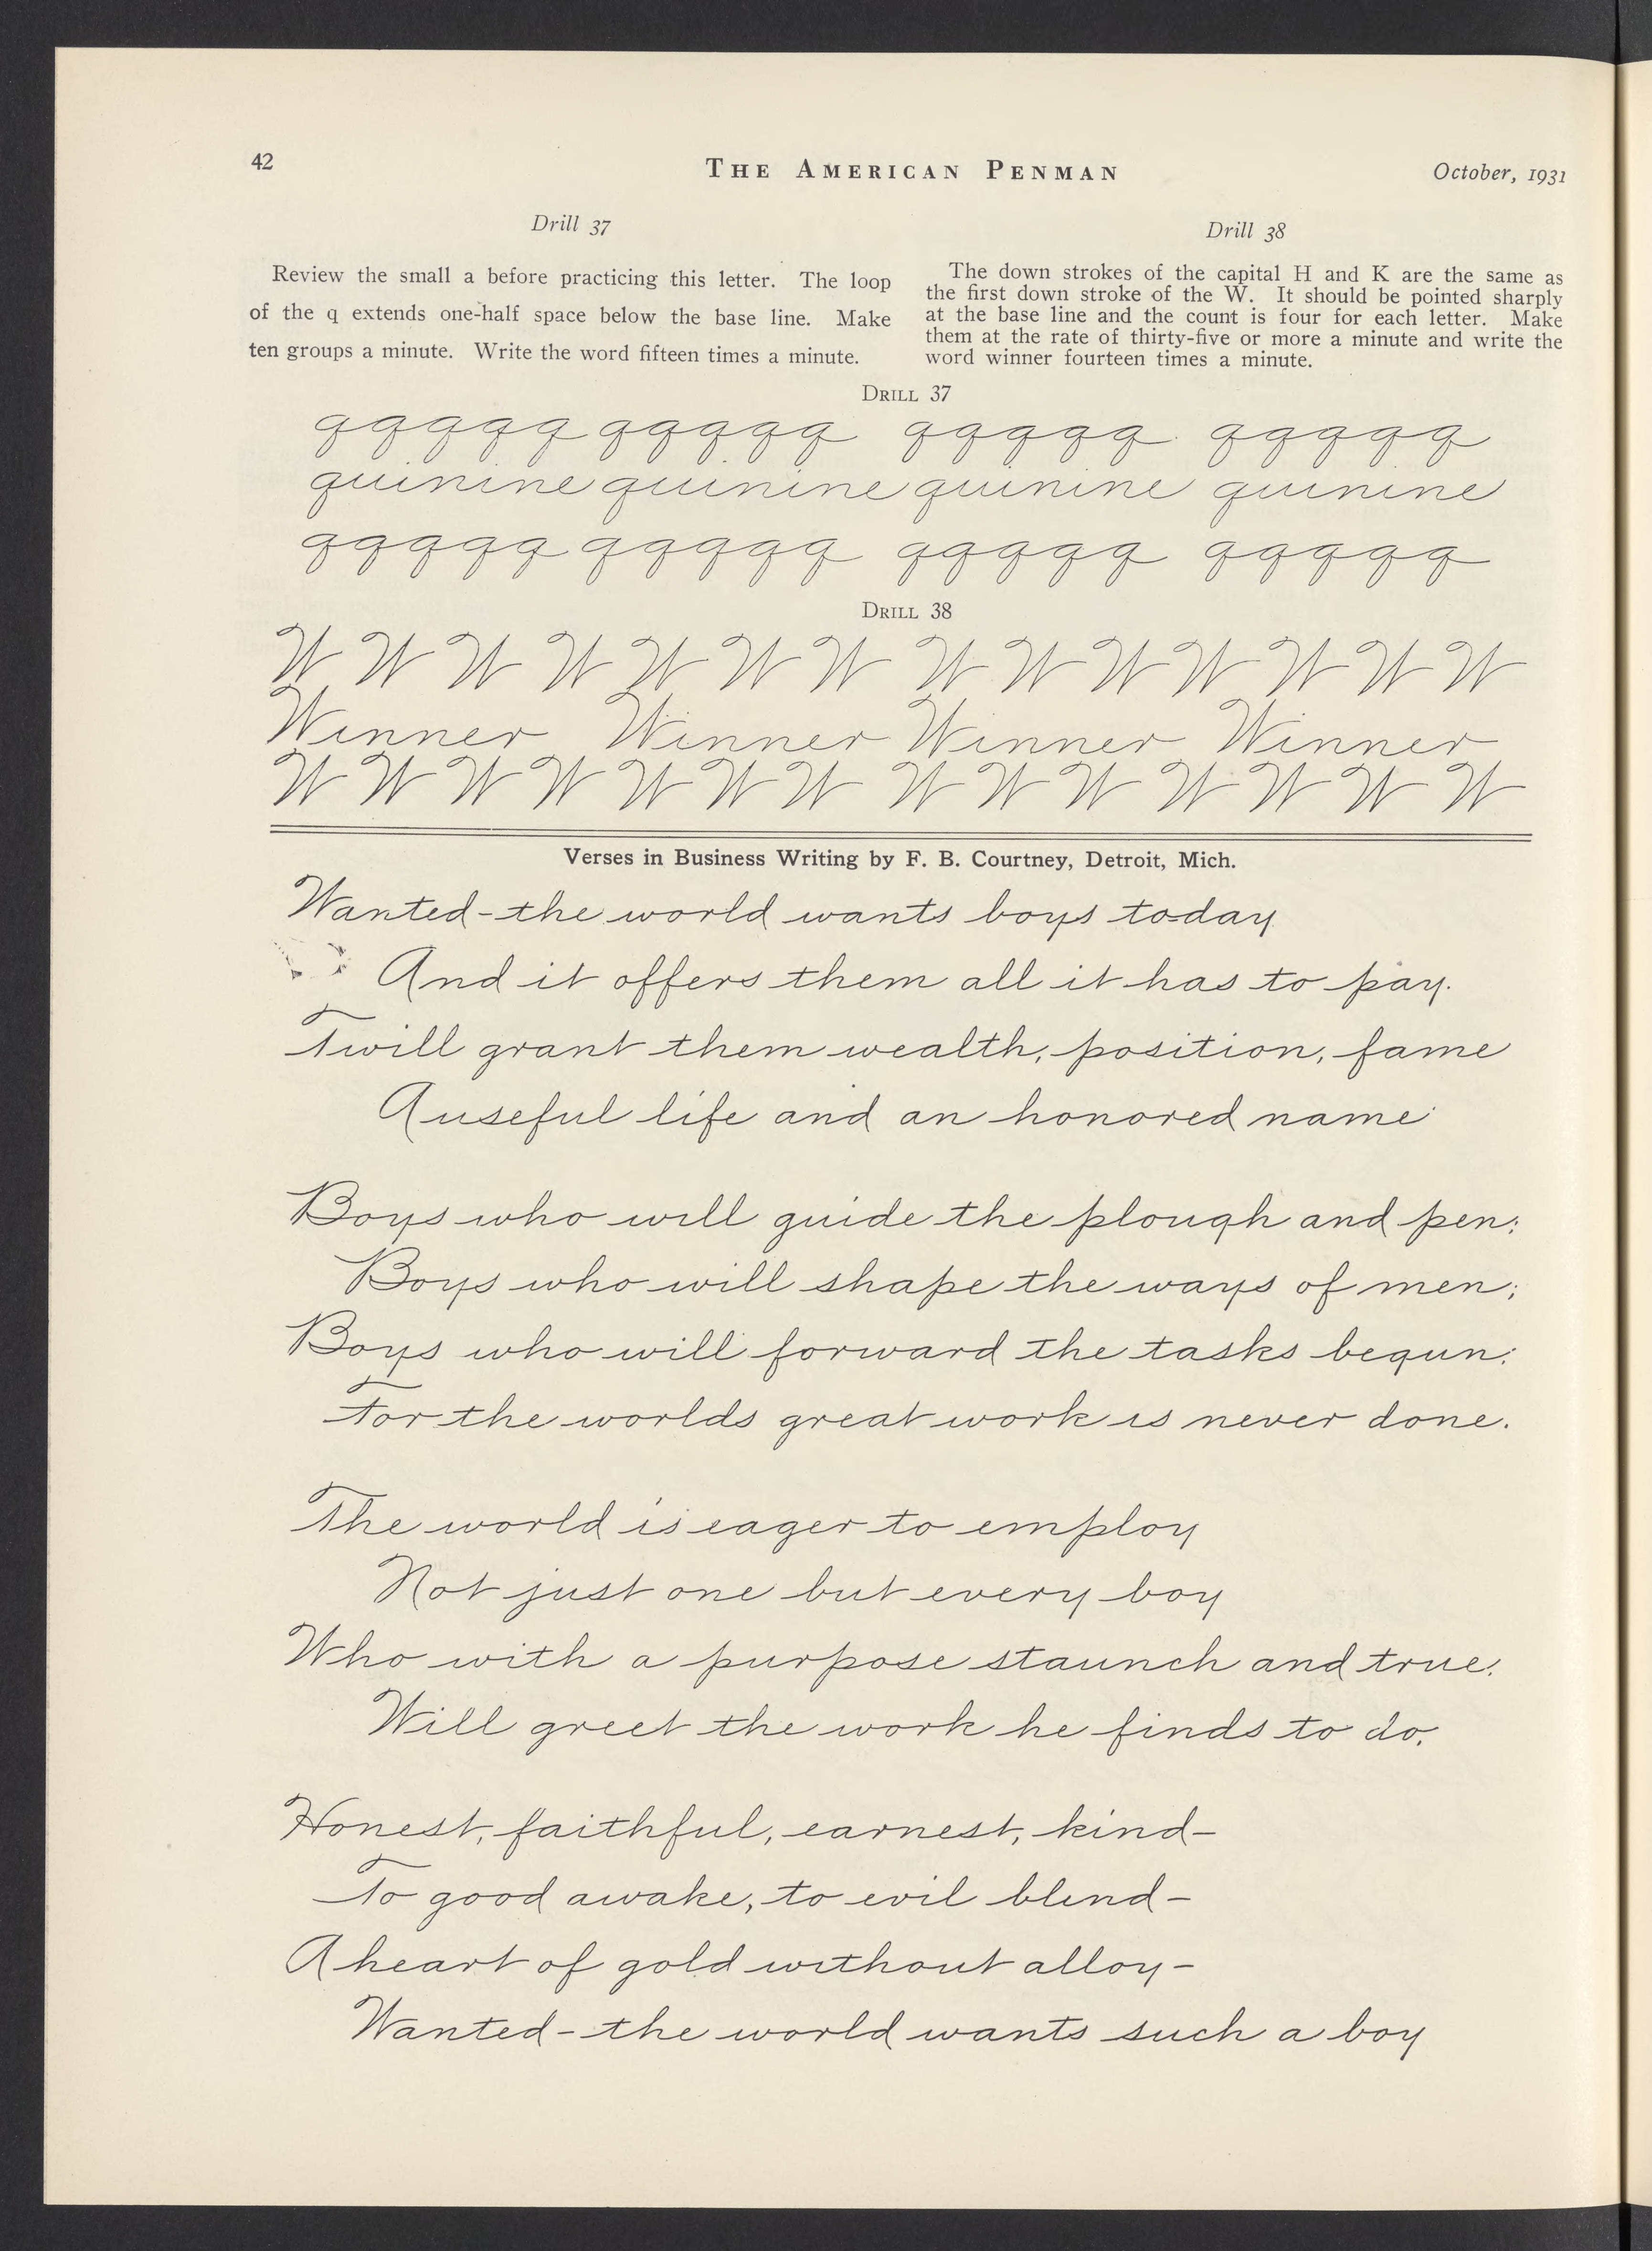 42
THE AMERICAN PENMAN
October, 1931
Drill 37
Review the small a before practicing this letter. The loop
of the q extends one-half space below the base line. Make
ten groups a minute. Write the word fifteen times a minute.
Drill 38
The down strokes of the capital H and K are the same as
the first down stroke of the W. It should be pointed sharply
at the base line and the count is four for each letter. Make
them at the rate of thirty-five or more a minute and write the
word winner fourteen times a minute.
DRILL 37
qqqqq qqqqq qqqqq qqqqq
quinine quinine quinine quinine
qqqqq qqqqq qqqqq qqqqq
DRILL 38
W W W W W W W W W W W W W W
Winner Winner Winner Winner
W W W W W W W W W W W W W W
Verses in Business Writing by F. B. Courtney, Detroit, Mich.
Wanted - the world wants boys to-day
And it offers them all it has to pay.
Twill grant them wealth, position, fame
A useful life and an honored name
Boys who will guide the plough and pen;
Boys who will shape the ways of men;
Boys who will forward the tasks begun;
For the worlds great work is never done.
The world is eager to employ
Not just one but every boy
Who with a purpose staunch and true,
Will greet the work he finds to do.
Honest, faithful, earnest, kind-
To good awake, to evil blind-
A heart of gold without alloy-
Wanted - the world wants such a boy